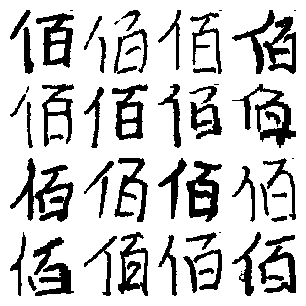 佰佰佰佰
佰佰佰佰
佰佰佰佰
佰佰佰佰